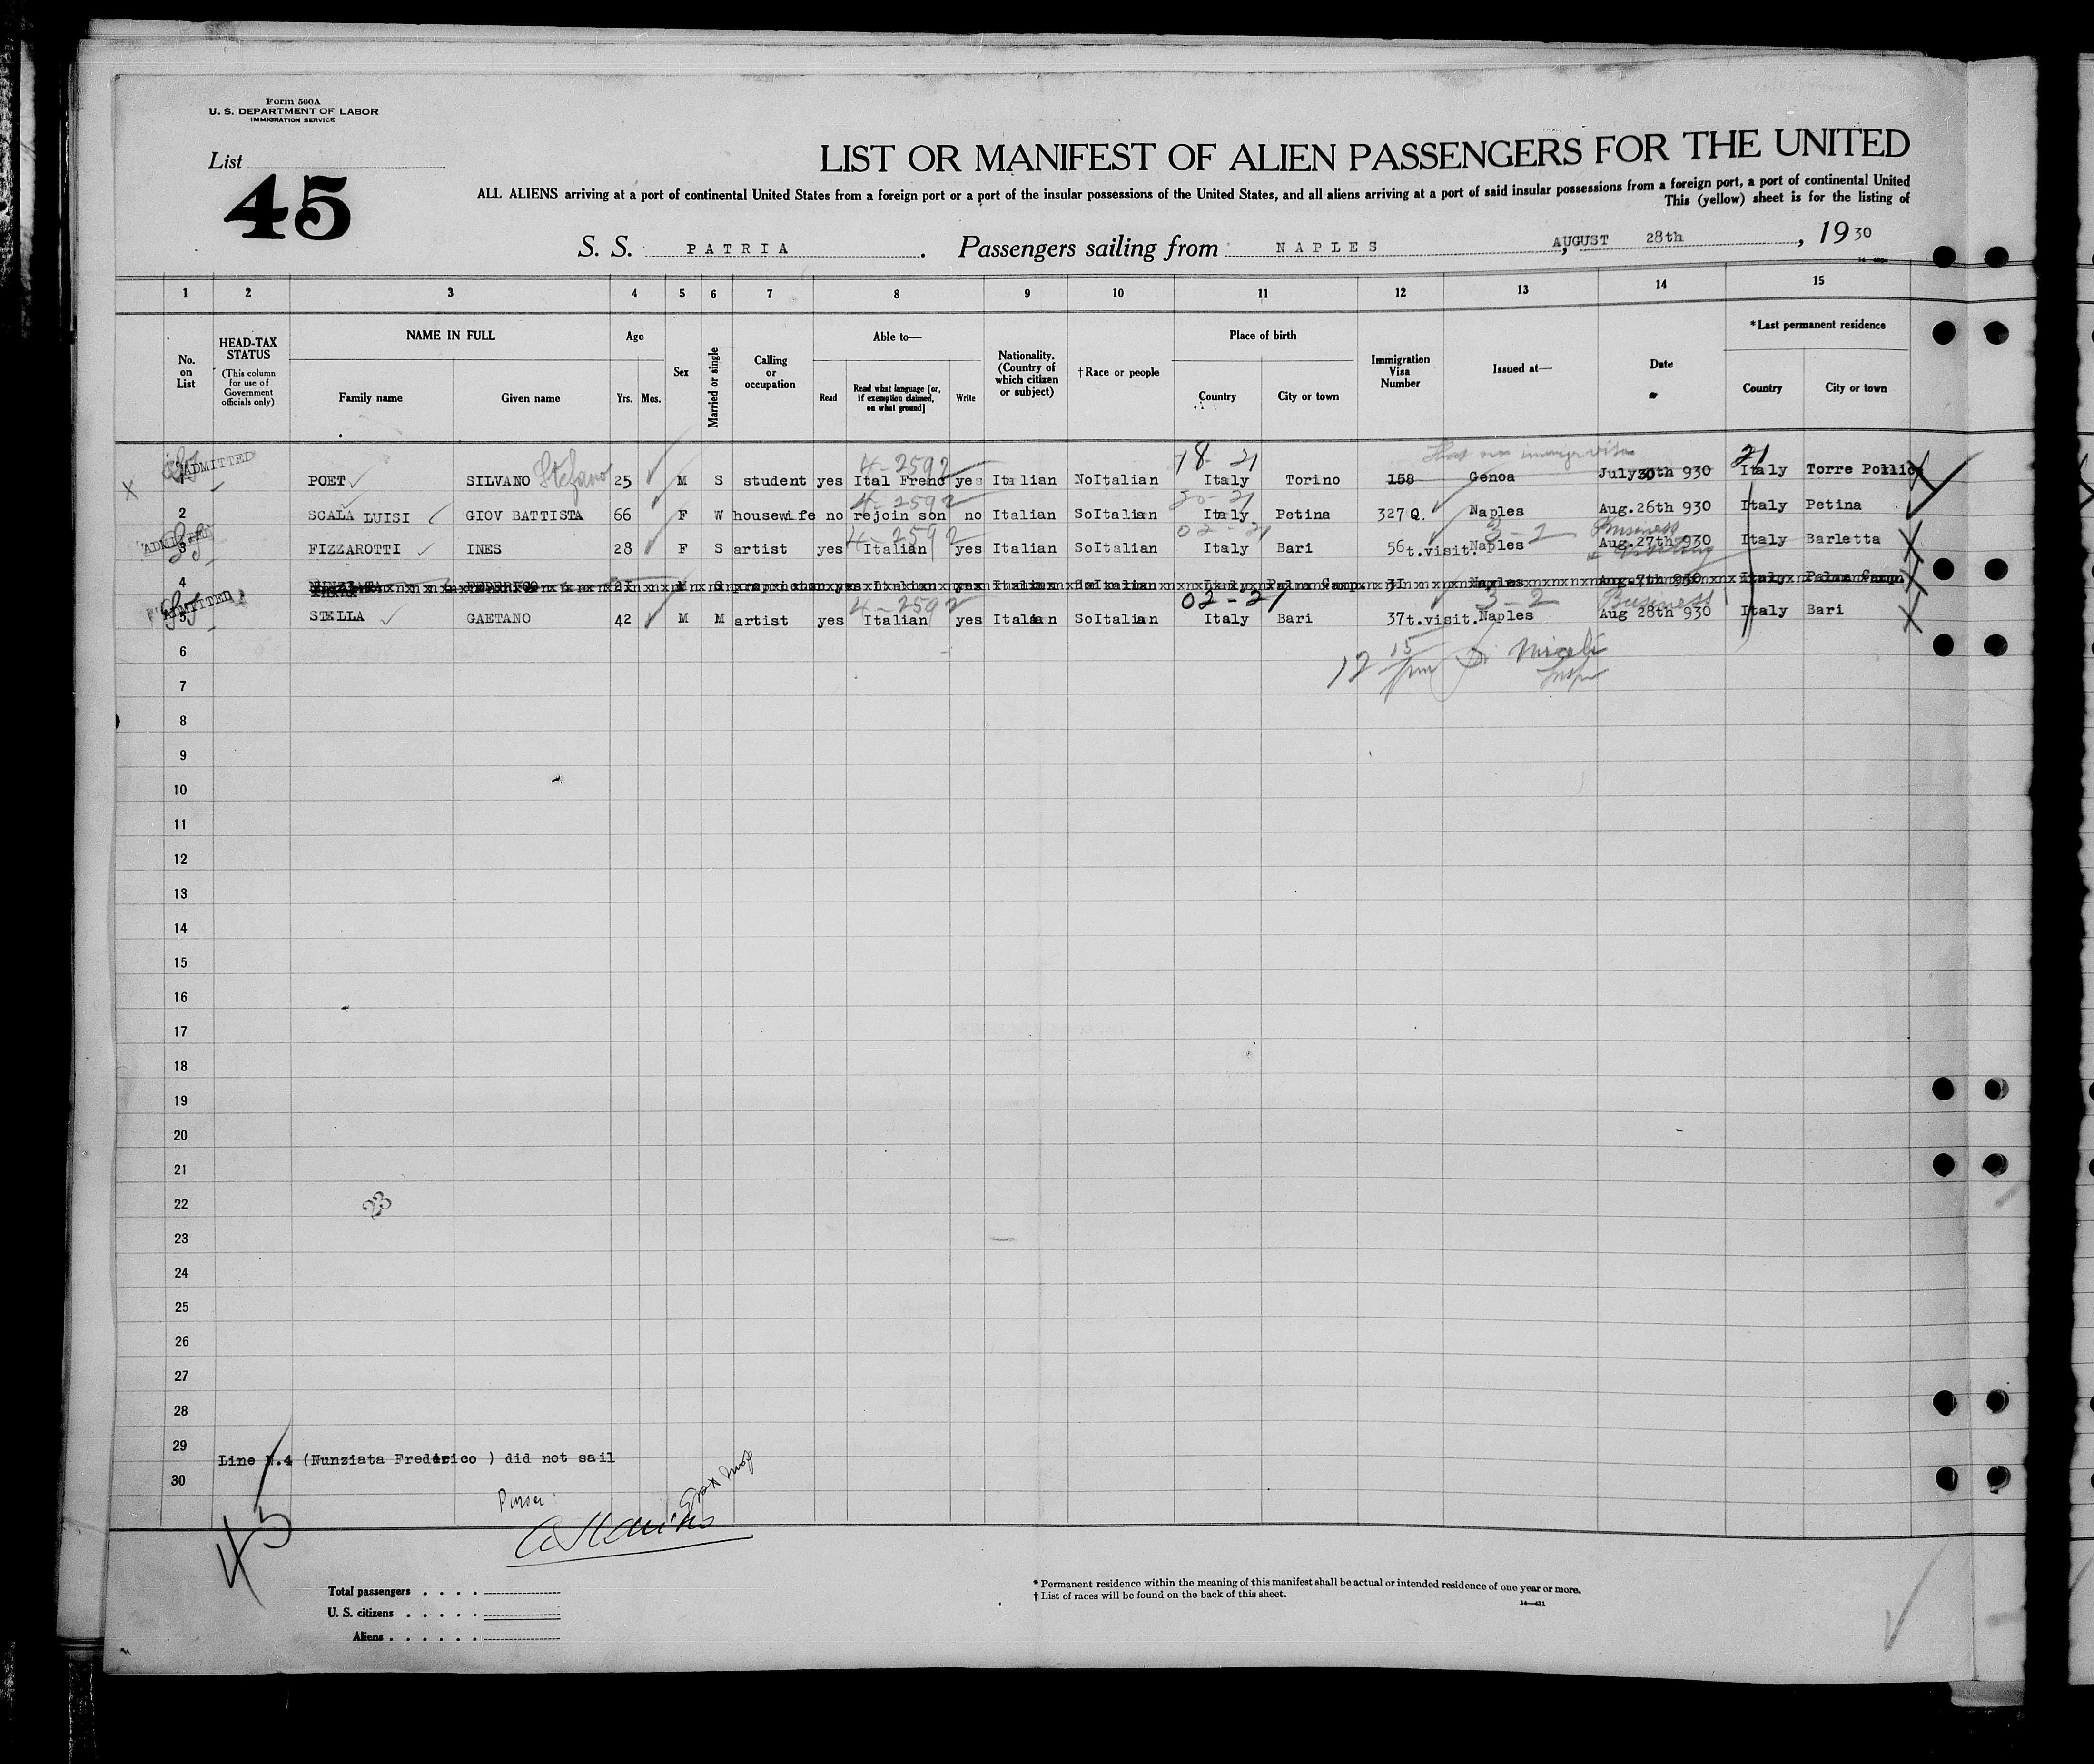 Form 500A
U. S. DEPARTMENT OF LABOR
IMMIGRATION SERVICE
List
45
LIST OR MANIFEST OF ALIEN PASSENGERS FOR THE UNITED
ALL ALIENS arriving at a port of continental United States from a foreign port or a port of the insular possessions of the United States, and all aliens arriving at a port of said insular possessions from a foreign port, a port of continental United
This (yellow) sheet is for the listing of
S. S. PATRIA . Passengers sailing from NAPLES , AUGUST 28th , 1930
1 2 3 4 5 6 7 8 9 10 11 12 13 14 15
No. on List
HEAD-TAX STATUS
(This column for use of Government officials only)
NAME IN FULL
Family name Given name
Age
Yrs. Mos.
Sex
Married or single
Calling or occupation
Able to—
Read Read what language [or, if exemption claimed, on what ground] Write
Nationality. (Country of which citizen or subject)
†Race or people
Place of birth
Country City or town
Immigration Visa Number
Issued at—
Date
*Last permanent residence
Country City or town
4-2592 18- 21 21
1 ADMITTED POET SILVANO Stefano 25 M S student yes Ital Frenc yes Italian NoItalian Italy Torino 158 Genoa July 30th 930 Italy Torre Pollice
4-2592
2 SCALA LUISI GIOV BATTISTA 66 F W housewife no rejoin son no Italian SoItalian Italy Petina 327 Q. Naples Aug.26th 930 Italy Petina
4-2592 02-21 3-2 Business
3 ADMITTED FIZZAROTTI INES 28 F S artist yes Italian yes Italian SoItalian Italy Bari 56t.visit. Naples Aug.27th 930 Italy Barletta
4 NUNZIATA FEDERICO
4-2592 02-21 3-2 Business
5 ADMITTED STELLA GAETANO 42 M M artist yes Italian yes Italian SoItalian Italy Bari 37t.visit. Naples Aug 28th 930 Italy Bari
6
12 15
7
8
9
10
11
12
13
14
15
16
17
18
19
20
21
22
23
23
24
25
26
27
28
29
Line N.4 (Nunziata Frederico ) did not sail
30
Purser
45
Total passengers
U. S. citizens
Aliens
* Permanent residence within the meaning of this manifest shall be actual or intended residence of one year or more.
† List of races will be found on the back of this sheet.
14—431